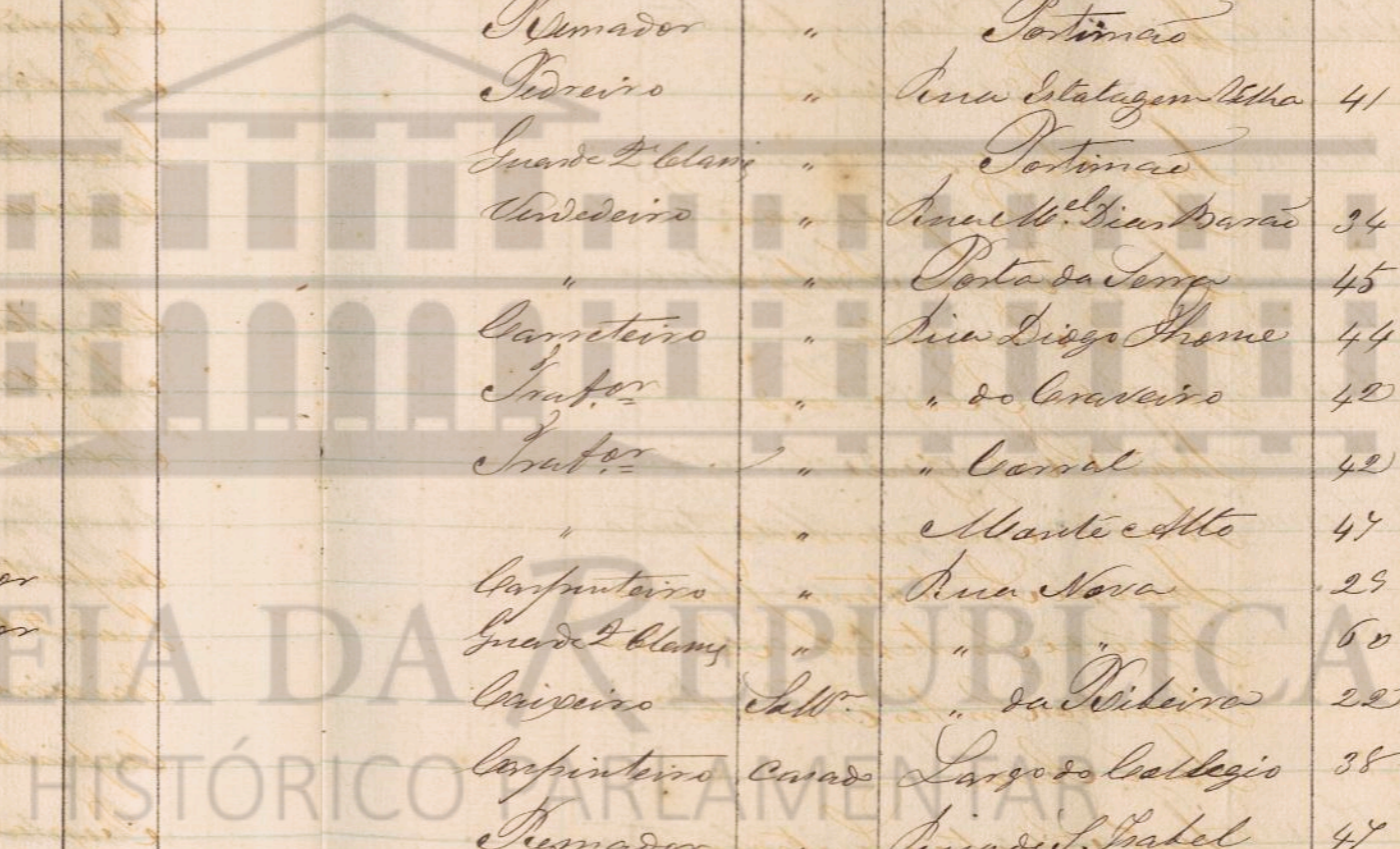 Remador " Portimão
Pedreiro " Rua Estalagem Velha 41
Guarda 2ª Classe " Portimão
Vendedeiro " Rua M.el Dias Barão 34
" " Porta da Serra 45
Carreteiro " Rua Diogo Thome 44
Trab.or " " do Craveiro 42
Trab.or " " Corral 42
" " Monte Alto 47
or Carpinteiro " Rua Nova 29
or Guarda 2ª Classe " " " 60
Caixeiro Solt.ro " da Ribeira 22
Carpinteiro casado Largo do Collegio 38
Remador " Rua de S. Isabel 47
EIA DA REPÚBLICA
HISTÓRICO PARLAMENTAR